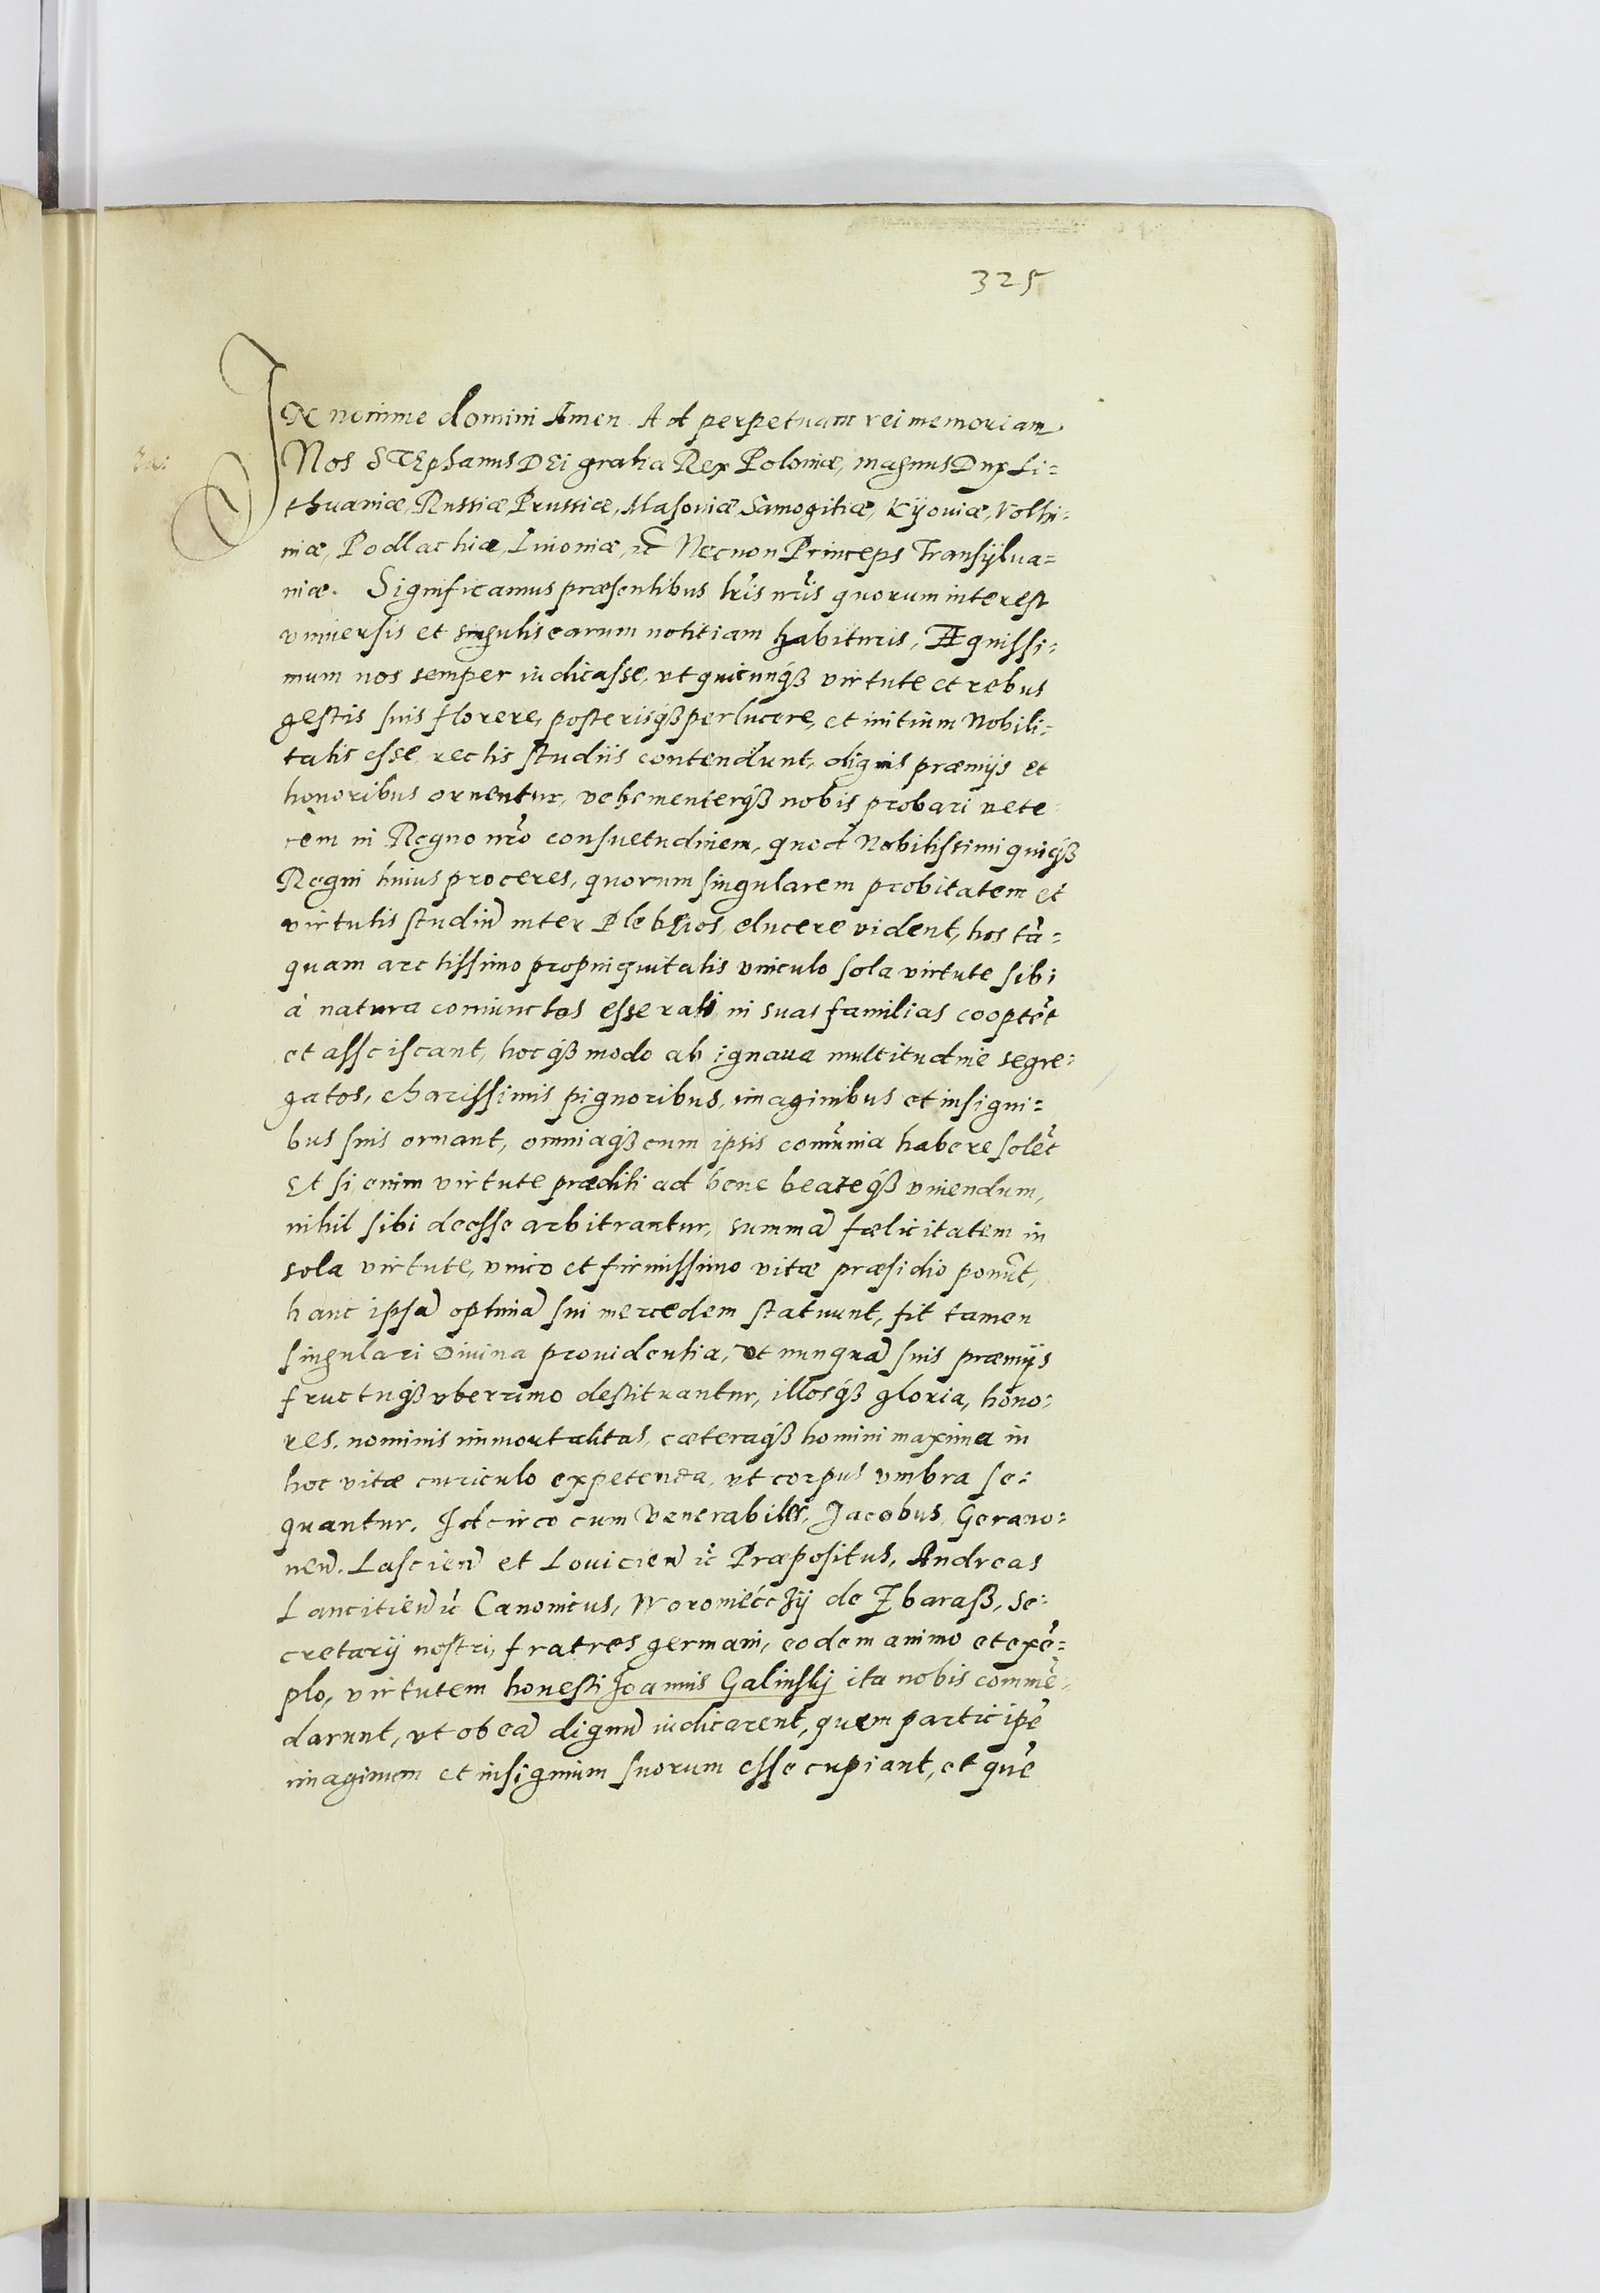 325
IN nomine domini Amen Ad perpetuam rei memoriam
Nos STEphanus DEi gratia Rex Poloniæ, magnus Dux Li=
thuaniæ, Russiæ, Prussiæ, Masoviæ Samogitiæ, Kijoviæ, Volhi=
niæ, Podlachiæ, Livoniæ, ic̃ Necnon Princeps Transÿlva=
niæ. Significamus præsentibus lr̃is nr̃is quorum interest
vniversis et singulis earum notitiam habituris, Æquissi=
mum nos semper iudicasse, vt quicunqꝫ virtute et rebus
gestis suis florere, posterisqꝫ perlucere, et initium Nobili=
tatis esse rectis studiis contendunt, dignis præmijs et
honoribus ornentur, vehementerqꝫ nobis probari vete=
rem in Regno nr̃o consuetudinem, quod Nobilissimi quiqꝫ
Regni huius proceres, quorum singularem probitatem et
virtutis studiũ inter Plebeios elucere vident, hos tã=
quam arctissimo propinquitatis vinculo sola virtute sibi
à natura coniunctos esse rati in suas familias cooptẽt
et assciscant, hocqꝫ modo ab ignava multitudine segre=
gatos, charissimis pignoribus, imaginibus et insigni=
bus suis ornant, omniaqꝫ cum ipsis com̃unia habere solẽt
Et si enim virtute præditi ad bene beateqꝫ vivendum,
nihil sibi deesse arbitrantur, summã fælicitatem in
sola virtute, vnico et firmissimo vitæ præsidio ponũt,
hanc ipsã optimã sui mercedem statuunt, fit tamen
singulari Divina providentia, vt nunquã suis præmijs
fructuqꝫ vberrimo destituantur, illosqꝫ gloria, hono=
res, nominis immortalitas, cæteraqꝫ homini maxima in
hoc vitæ curiculo expetenda, vt corpus vmbra se=
quantur. Idcirco cum Venerabiles, Jacobus Gerano=
neñ. Lascieñ et Lovicieñ ic̃ Præpositus, Andreas
Lancitieñ ic̃ Canonicus, Woroniecczij de Zbaraß, Se=
cretarij nostri, fratres germani, eodem animo et exẽ=
plo, virtutem honesti Joannis Galinskij ita nobis commẽ=
darunt, vt ob eã dignũ iudicarent, quem participẽ
imaginum et insignium suorum esse cupiant, et quẽ